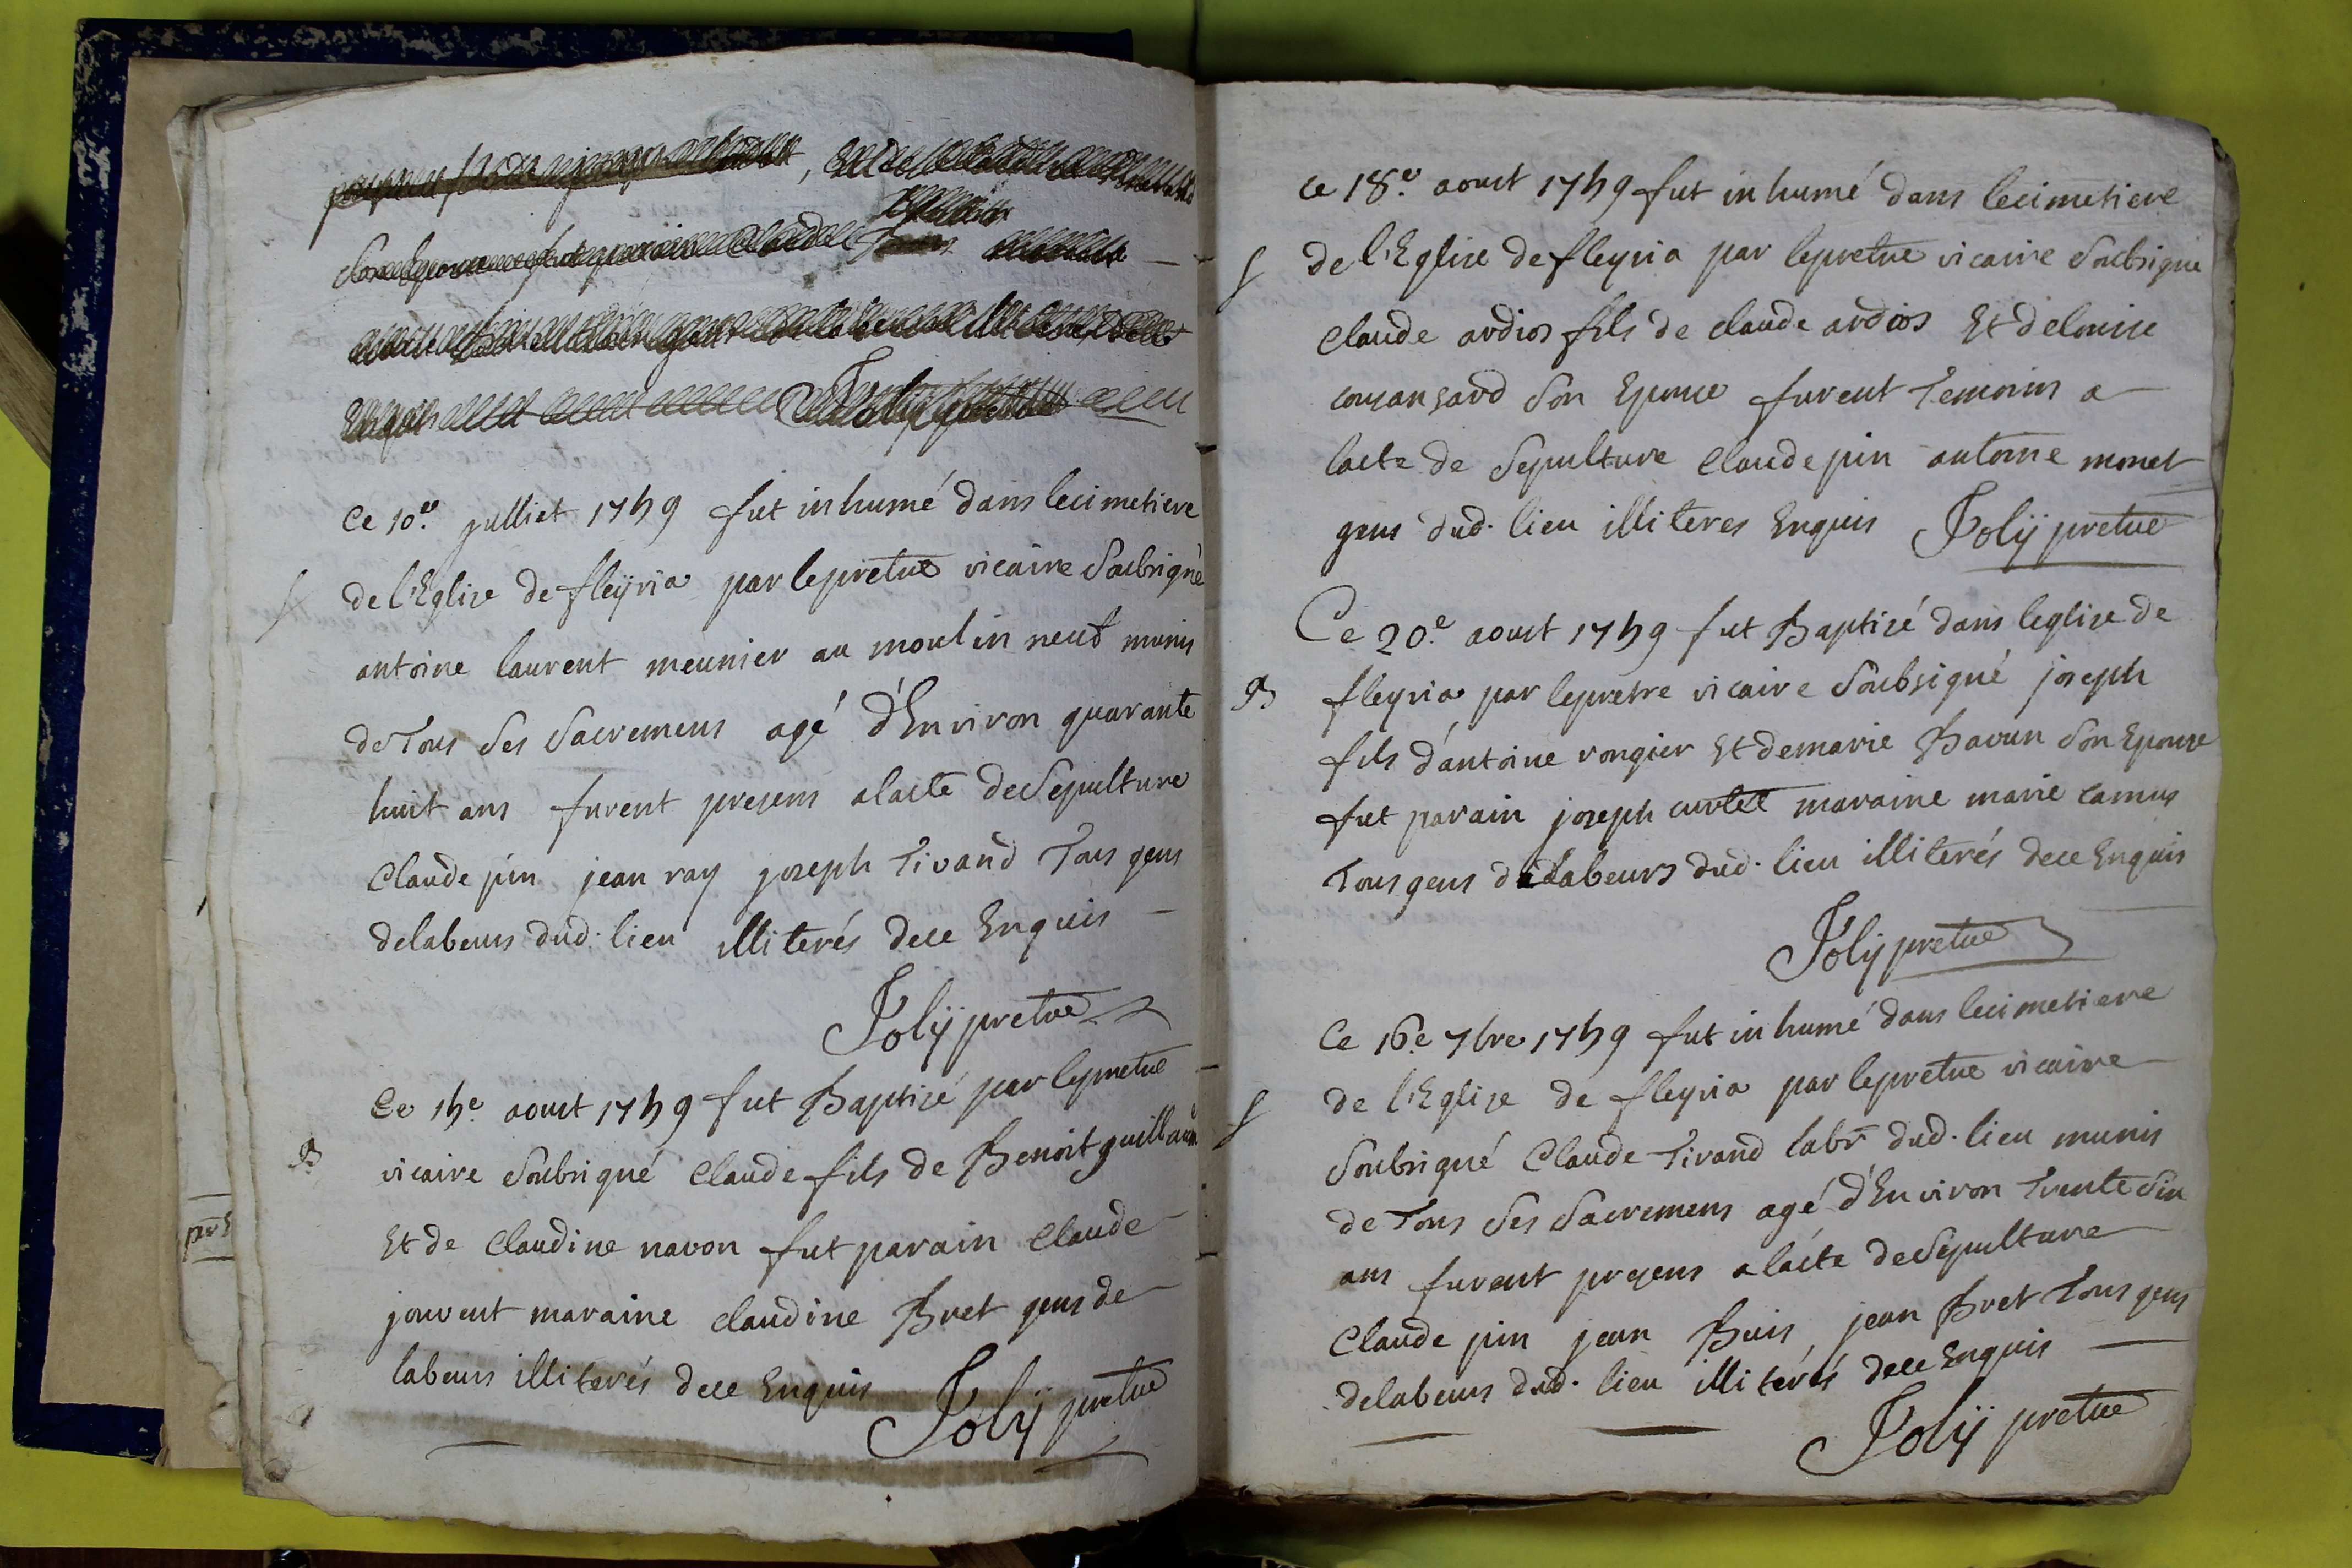 Ce 10e. julliet 1759 fut inhumé dans lecimetiere
S de l'Eglise de fleÿria par lepretre vicaire Soubsigné
antoine laurent meunier au moulin neuf munis
de Tous Ses Sacremens agé d'Environ quarante
huit ans furent presens alacte deSepulture
Claude pin jean ray joseph Tivand Tous gens
delabeurs dud. lieu illiterés dece Enquis
Jolÿ pretre
Ce 15e aoust 1759 fut Baptisé par lepretre
B vicaire Soubsigné Claude fils de Benoit guillaum
Et de Claudine navon fut parain Claude
jouvent maraine claudine Bret gens de
labeurs illiterés dece Enquis Jolÿ pretre
Ce 18e. aoust 1759 fut inhumé dans lecimetiere
S de l'Eglise de fleyria par lepretre vicaire Soubsigné
Claude ardios fils de claude ardios Et delouise
comansard Son Epouse furent Temoins a
lacte de Sepulture Claude pin antoine monet
gens dud. lieu illiteres Enquis Jolÿ pretre
Ce 20.e aoust 1759 fut Baptisé dans leglise de
B fleyria par lepretre vicaire Soubsigné joseph
fils d'antoine rongier Et demarie Bavun Son Epouse
fut parain joseph curlet maraine marie camus
Tous gens de labeurs dud. lieu illiterés dece Enquis
Jolÿ pretre
Ce 16.e 7bre 1759 fut inhumé dans lecimetiere
S de l'Eglise de fleyria par lepretre vicaire
Soubsigné Claude Tivand labr dud. lieu munis
de Tous Ses Sacremens agé d'Environ Trente Six
ans furent presens alacte deSepulture
Claude pin jean Buis, jean Bret Tous gens
delabeurs dud. lieu illiterés dece Enquis
Jolÿ pretre